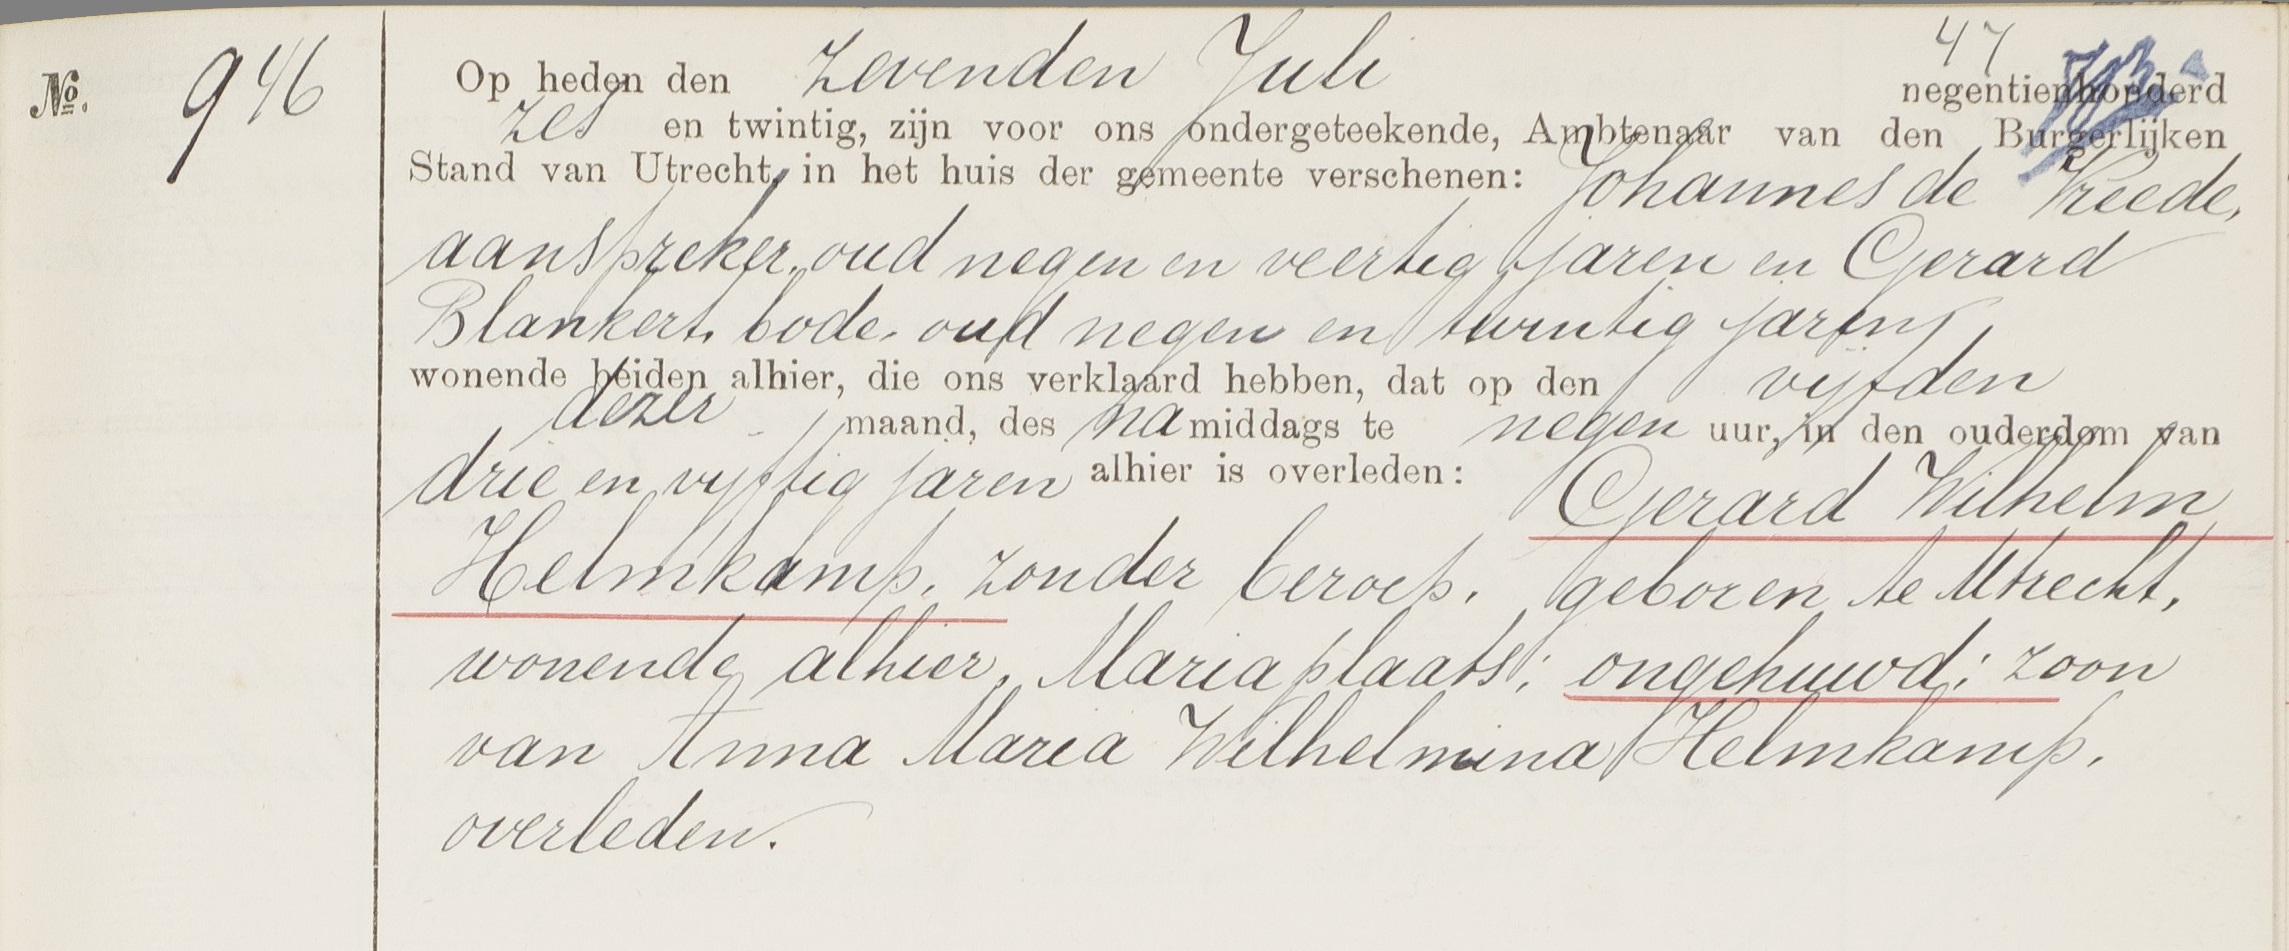 47
No. 946
Op heden den zevenden Juli negentienhonderd
zes en twintig, zijn voor ons ondergeteekende, Ambtenaar van den Burgerlijken
Stand van Utrecht, in het huis der gemeente verschenen: Johannes de Vreede,
aanspreker, oud negen en veertig jaren en Gerard
Blankert, bode, oud negen en twintig jaren,
wonende beiden alhier, die ons verklaard hebben, dat op den vijfden
dezer maand, des namiddags te negen uur, in den ouderdom van
drie en vijftig jaren alhier is overleden: Gerard Wilhelm
Helmkamp, zonder beroep, geboren te Utrecht,
wonende alhier, Mariaplaats; ongehuwd; zoon
van Anna Maria Wilhelmina Helmkamp,
overleden.